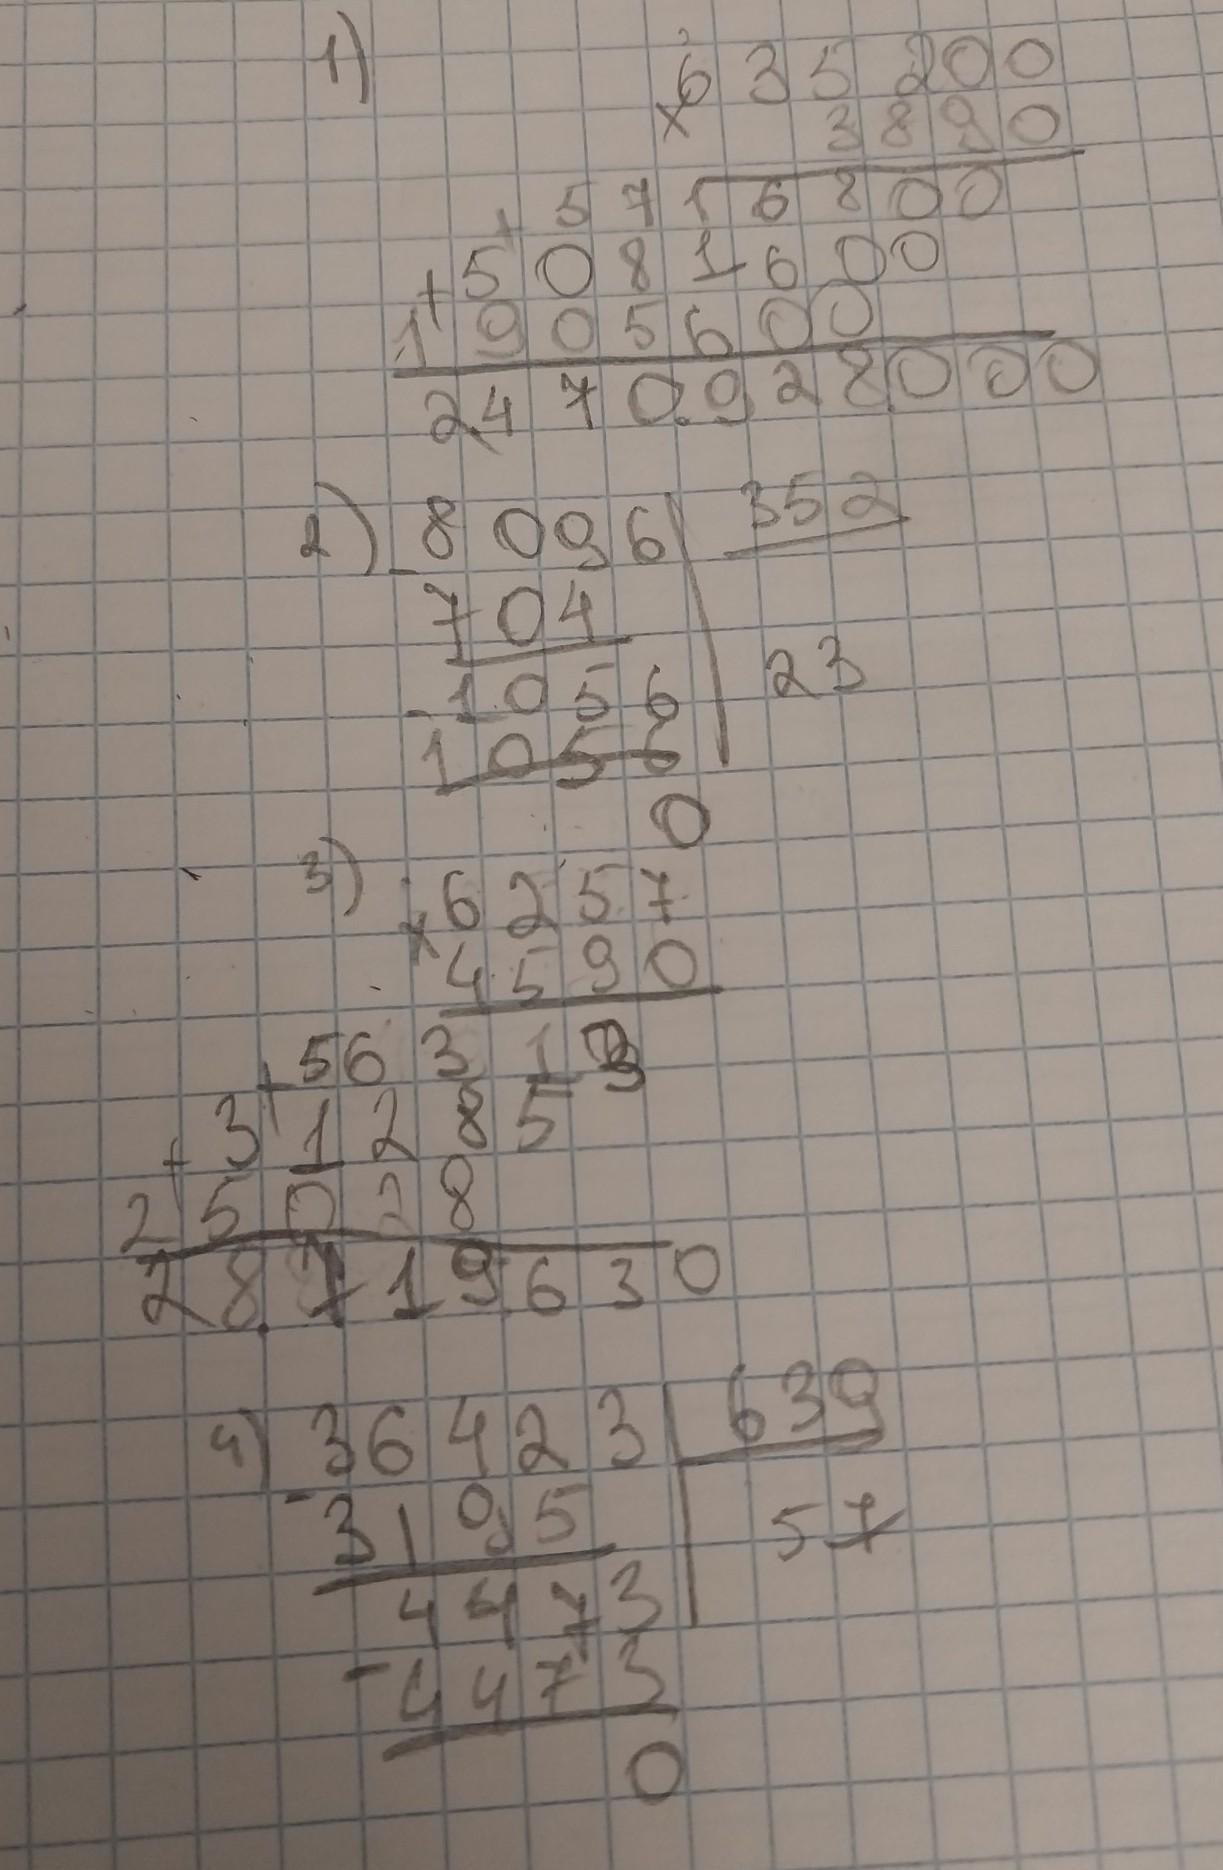 1) 635 200
× 3890
+ 57168 00
+ 5081600
19056 00
2470.928.000
2) - 8096 | 352
704
23
- 1056
1056
0
3) × 6257
4590
+ 56313
+ 31285
25028
28.719630
4) - 36423 | 639
3195 57
4473
- 4473
0